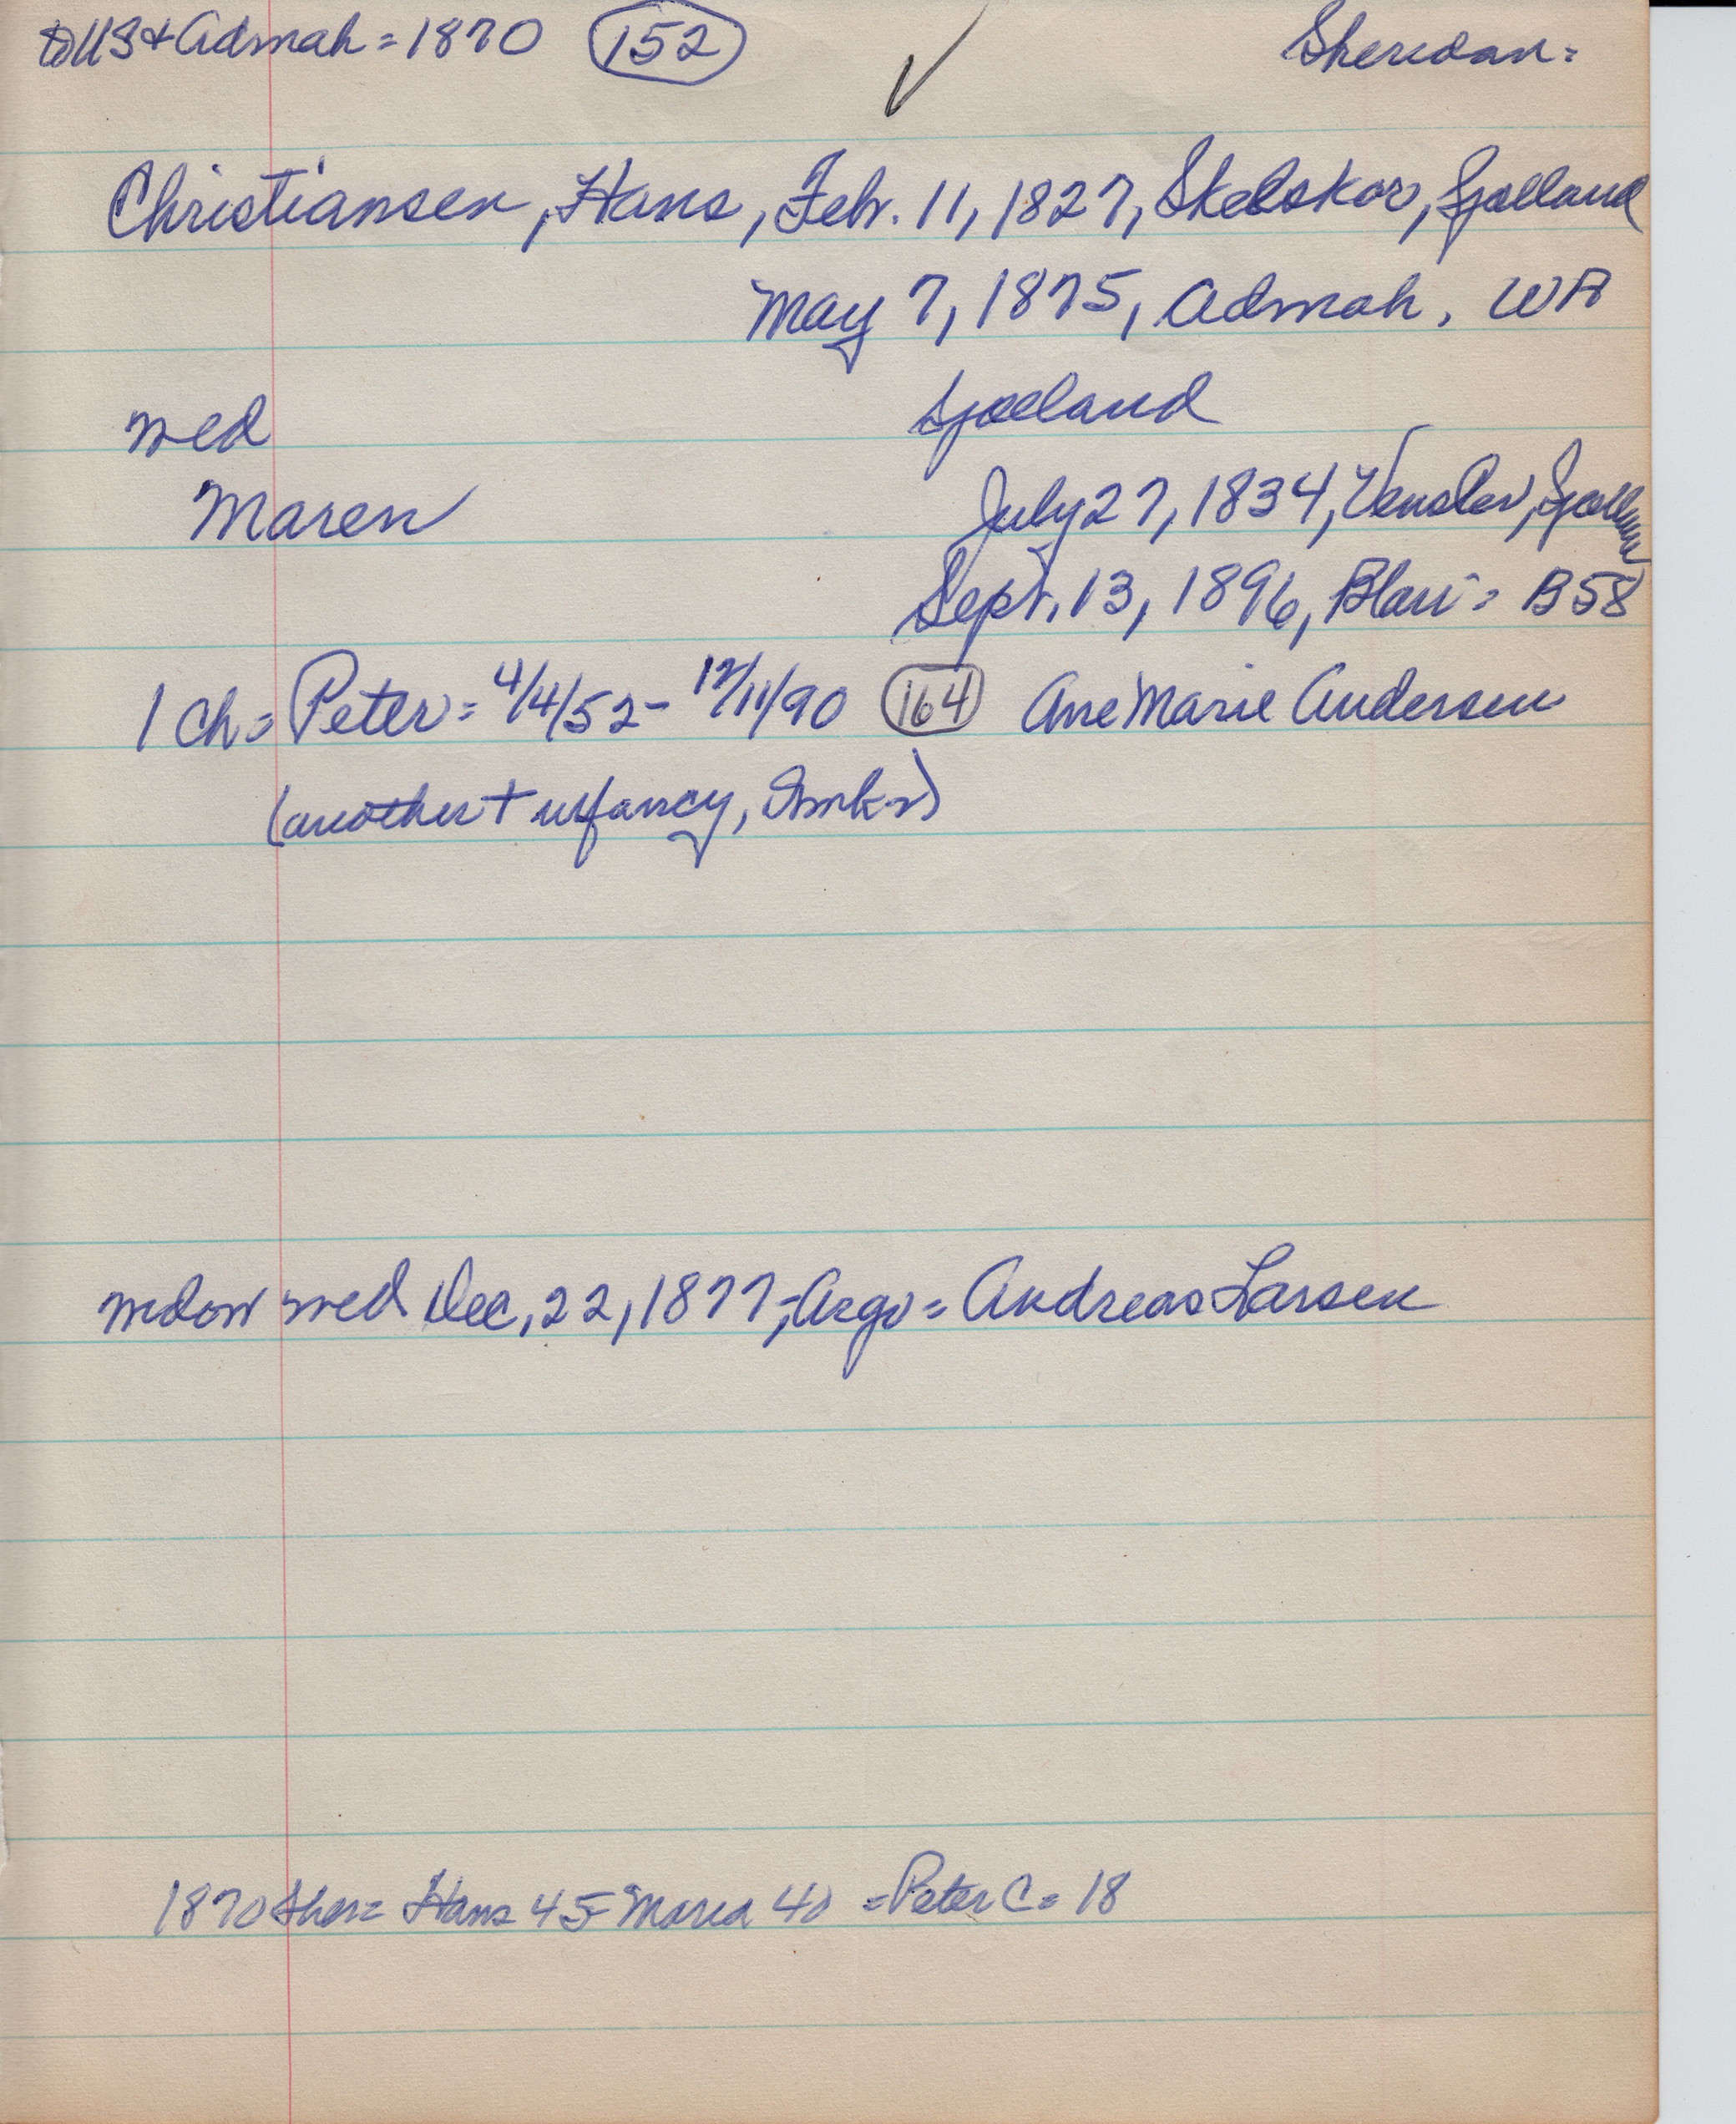 to US + Admah = 1870 152 Sheridan =
Christiansen, Hans, Feb. 11, 1827, Skelskor, Sjælland
May 7, 1875, Admah, WA
wed Sjælland
Maren July 27, 1834, Venslev, Sjælland
Sept. 13, 1896, Blair = B58
1 ch = Peter = 4/4/52 - 12/11/90 164 Ane Marie Andersen
(another + infancy, Dmk)
widow wed Dec, 22, 1877, Argo = Andreas Larsen
1870 Sher = Hans 45 - Maria 40 = Peter C = 18